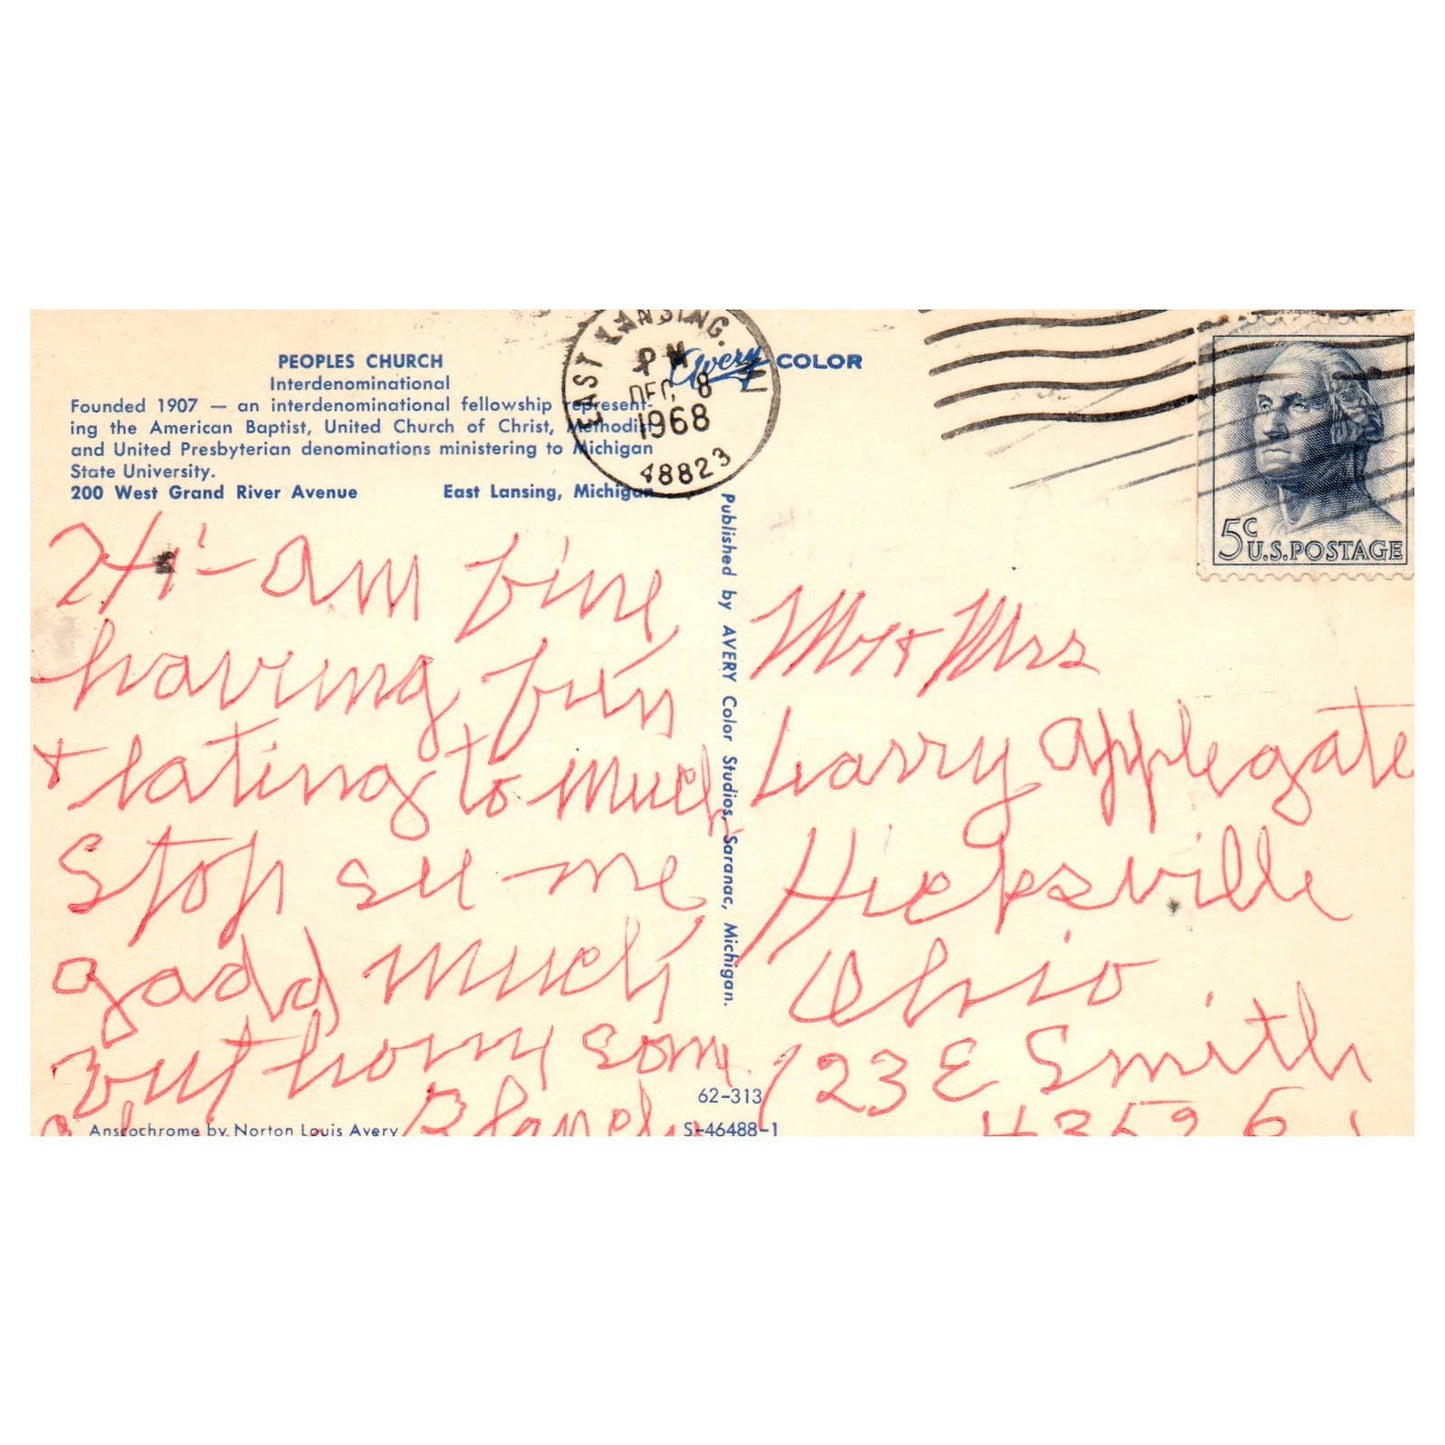 PEOPLES CHURCH
Interdenominational
Founded 1907 — an interdenominational fellowship represent-
ing the American Baptist, United Church of Christ, Methodist
and United Presbyterian denominations ministering to Michigan
State University.
200 West Grand River Avenue East Lansing, Michigan
EAST LANSING, MI
PM
DEC 8
1968
48823
Avery COLOR
5c
U.S. POSTAGE
Hi - Am fine
having fun
+ eating to much
Stop see me
gadd much
but horny som
Blanch
Published by AVERY Color Studios, Saranac, Michigan.
Mr + Mrs
Larry Applegate
Hicksville
Ohio
123 E Smith
43526
62-313
Anscochrome by Norton Louis Avery
S-46488-1